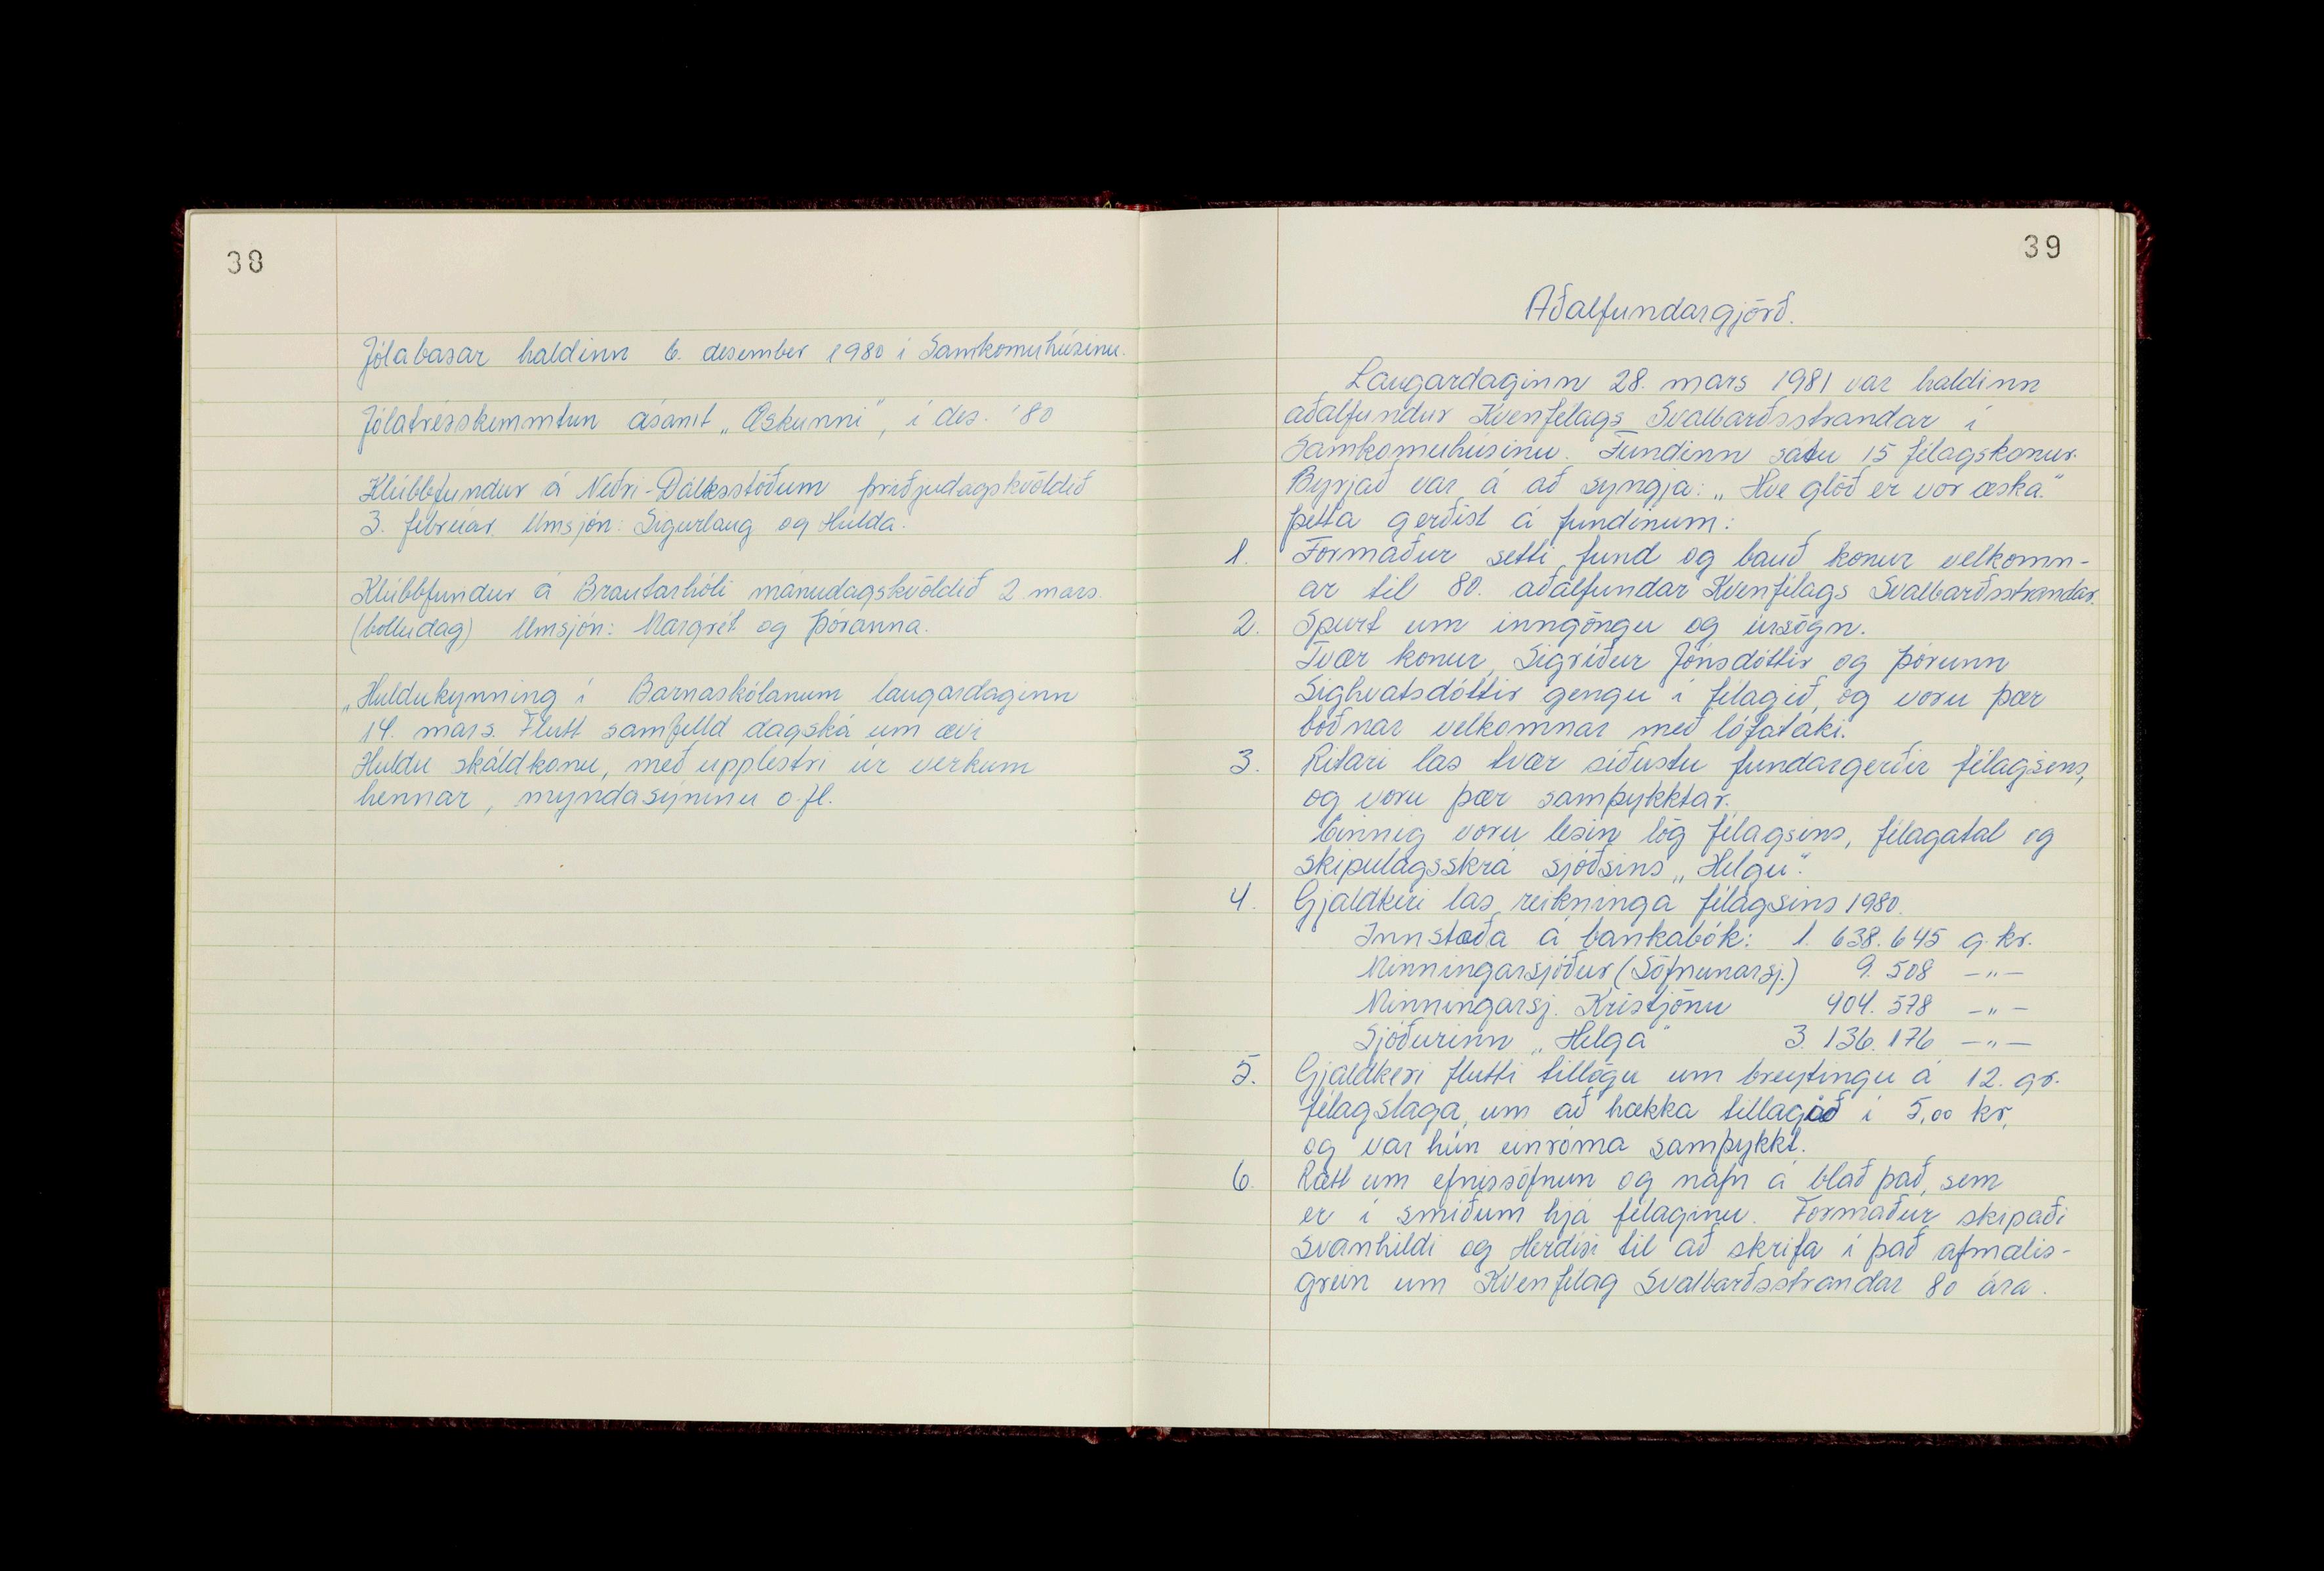 38
Jólabasar haldinn 6. desember 1980 í Samkomuhúsinu.
Jólatrésskemmtun ásamt „Æskunni", í des. '80
Klúbbfundur á Neðri-Dálksstöðum þriðjudagskvöldið
3. febrúar. Umsjón: Sigurlaug og Hulda.
Klúbbfundur á Brautarhóli mánudagskvöldið 2. mars.
(bolludag) Umsjón: Margrét og Þóranna.
„Huldukynning í Barnaskólanum laugardaginn
14. mars. Flutt samfelld dagská um ævi
Huldu skáldkonu, með upplestri úr verkum
hennar, myndasýninu o.fl.
39
Aðalfundargjörð.
Laugardaginn 28. mars 1981 var haldinn
aðalfundur Kvenfélags Svalbarðsstrandar í
Samkomuhúsinu. Fundinn sátu 15 félagskonur.
Byrjað var á að syngja: „Hve glöð er vor æska."
Þetta gerðist á fundinum:
1. Formaður setti fund og bauð konur velkomn-
ar til 80. aðalfundar Kvenfélags Svalbarðsstrandar.
2. Spurt um inngöngu og úrsögn.
Tvær konur, Sigríður Jónsdóttir og Þórunn
Sighvatsdóttir gengu í félagið, og voru þær
boðnar velkomnar með lófataki.
3. Ritari las tvær síðustu fundargerðir félagsins,
og voru þær samþykktar.
Einnig voru lesin lög félagsins, félagatal og
skipulagsskrá sjóðsins „Helgu".
4. Gjaldkeri las reikninga félagsins 1980.
Innstæða á bankabók: 1. 638. 645 g. kr.
Minningarsjóður (Söfnunarsj.) 9. 508 —"—
Minningarsj. Kristjönu 404. 578 —"—
Sjóðurinn „Helga" 3. 136. 176 —"—
5. Gjaldkeri flutti tillögu um breytingu á 12. gr.
félagslaga, um að hækka tillagið í 5,00 kr,
og var hún einróma samþykkt.
6. Rætt um efnissöfnun og nafn á blað það, sem
er í smíðum hjá félaginu. Formaður skipaði
Svanhildi og Herdísi til að skrifa í það afmælis-
grein um Kvenfélag Svalbarðsstrandar 80 ára.